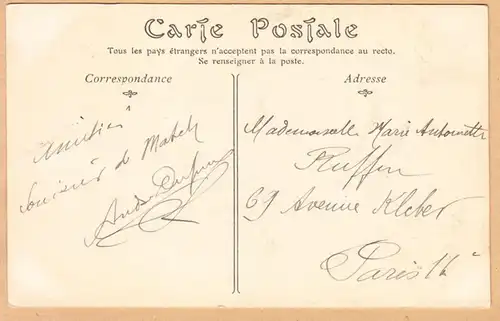 Carte Postale
Tous les pays étrangers n'acceptent pas la correspondance au recto.
Se renseigner à la poste.
Correspondance
Adresse
souvenir de
André
Mademoiselle Marie Antoinette
Ruffin
69 Avenue Kleber
Paris 16e